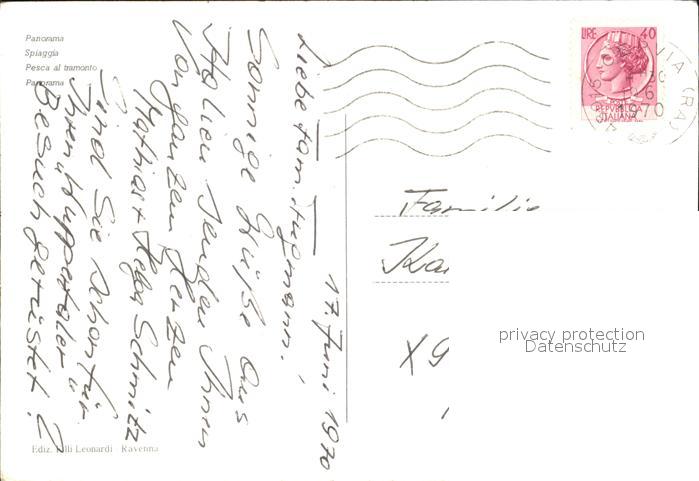 Panorama
Spiaggia
Pesca al tramonto
Panorama
17. Juni 1970
Liebe Fam.
Sonnige Grüße aus
Italien senden Ihnen
von ganzem Herzen
Mathias + Schmitz
Sind Sie schon für
Ihren Wuppertaler
Besuch gerüstet?
Ediz. F.lli Leonardi - Ravenna
LIRE 40
REPVBBLICA
ITALIANA
CERVIA (RA)
1970
Familie
Ka
X9
privacy protection
Datenschutz